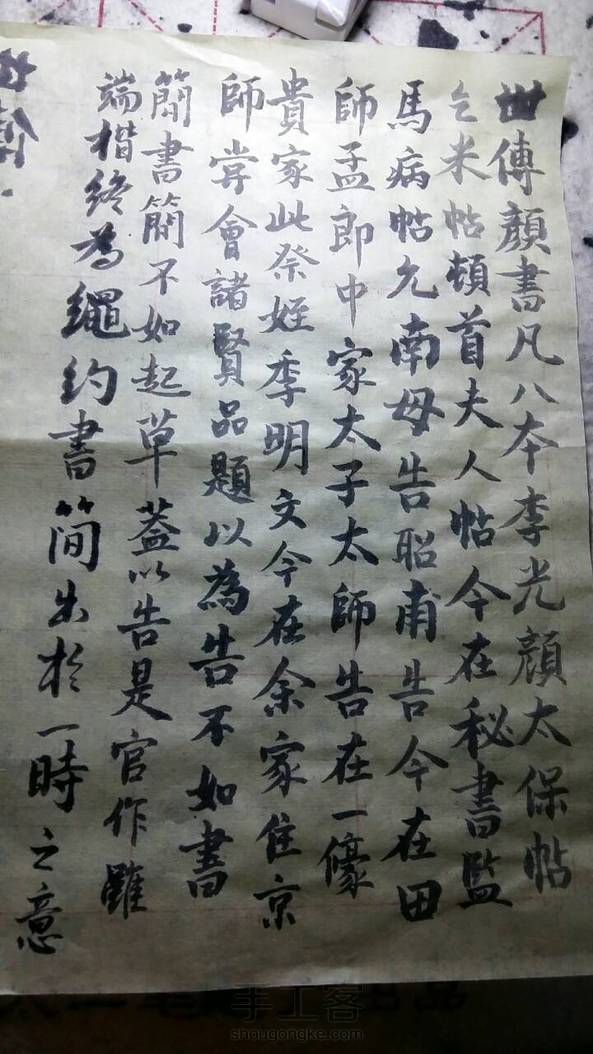 世傳顏書凡八本李光顏太保帖
乞米帖頓首夫人帖今在秘書監
馬病帖允南母告昭甫告今在田
師孟郎中家太子太師告在一濠
貴家此祭姪季明文今在余家住京
師嘗會諸賢品題以為告不如書
簡書簡不如起草蓋以告是官作雖
端楷終為繩约書简出於一時之意
手工客
shougongke.com